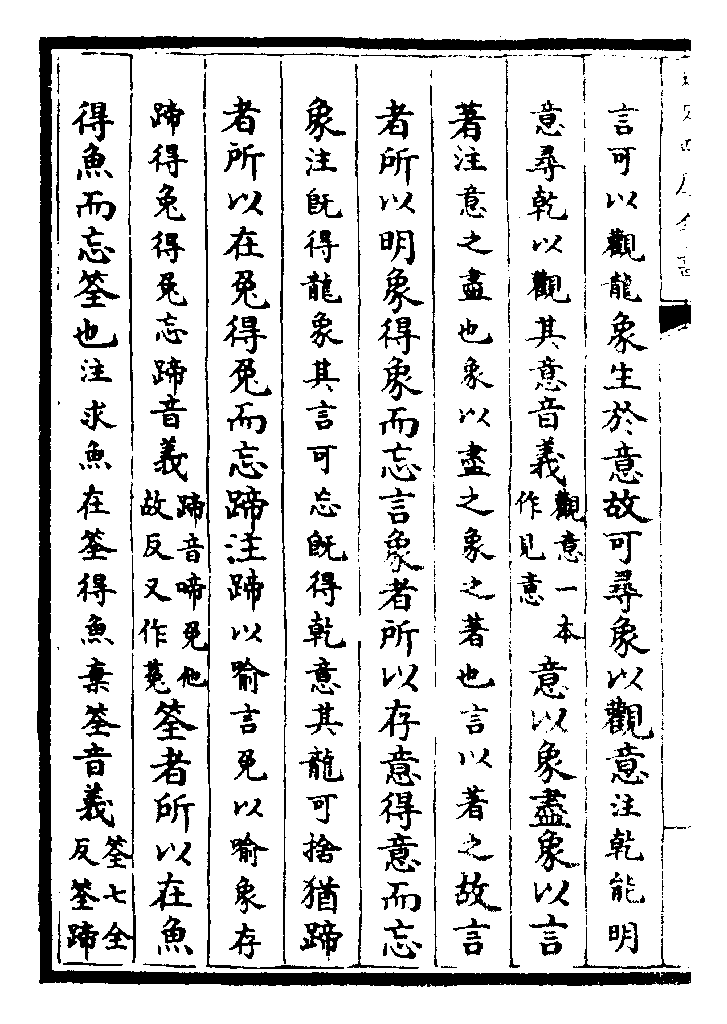 言可以觀龍象生於意故可尋象以觀意注乾能明
意尋乾以觀其意音義觀意一本作見意意以象盡象以言
著注意之盡也象以盡之象之著也言以著之故言
者所以明象得象而忘言象者所以存意得意而忘
象注旣得龍象其言可忘旣得乾意其龍可捨猶蹄
者所以在兔得兔而忘蹄注蹄以喻言兔以喻象存
蹄得兔得兔忘蹄音義蹄音啼兔他故反又作菟筌者所以在魚
得魚而忘筌也注求魚在筌得魚棄筌音義筌七全反筌蹄